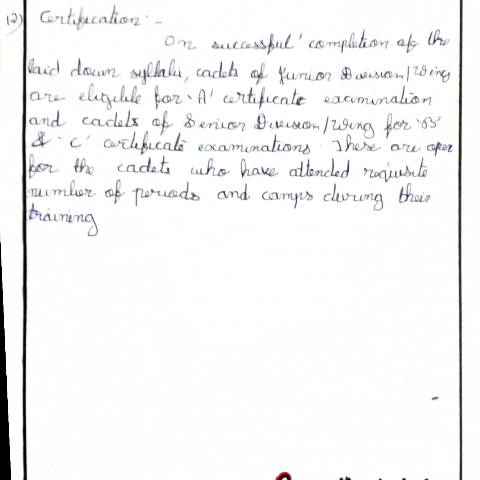 12) Certification:-
On successful completion of the
laid down syllabi, cadets of Junior Division/Wing
are eligible for 'A' certificate examination
and cadets of Senior Division/Wing for 'B'
& 'C' certificate examinations. These are open
for the cadets who have attended requisite
number of periods and camps during their
training